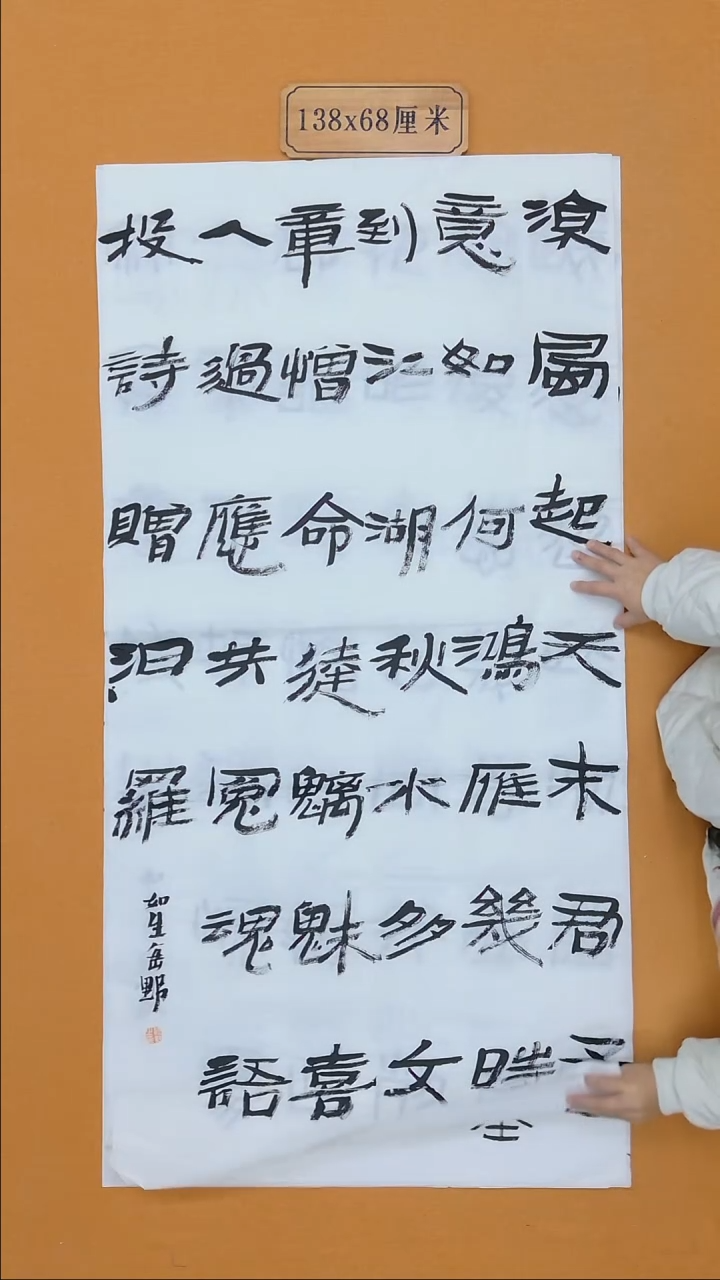 138x68厘米
涼風起天末君子
意如何鴻雁幾時
到江湖秋水多文
章憎命達魑魅喜
人過應共冤魂語
投詩贈汨羅
如生